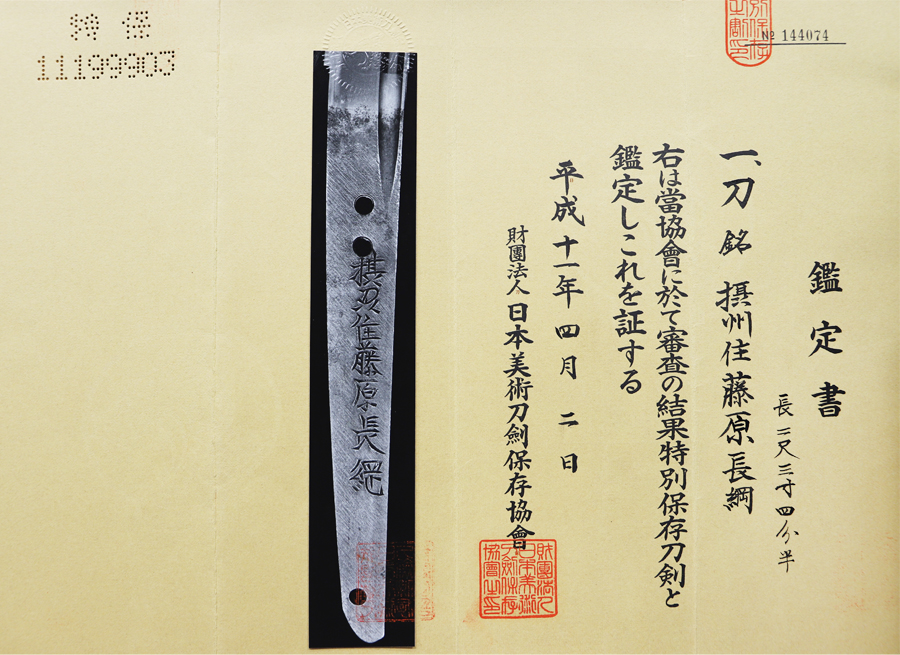 № 144074
鑑定書
長二尺三寸四分半
一、刀 銘 摂州住藤原長綱
右は當協會に於て審査の結果特別保存刀剣と
鑑定しこれを証する
平成十一年四月二日
財團法人日本美術刀劍保存協會
財團法人日本美術刀劍保存協會之印
摂州住藤原長綱
11199903